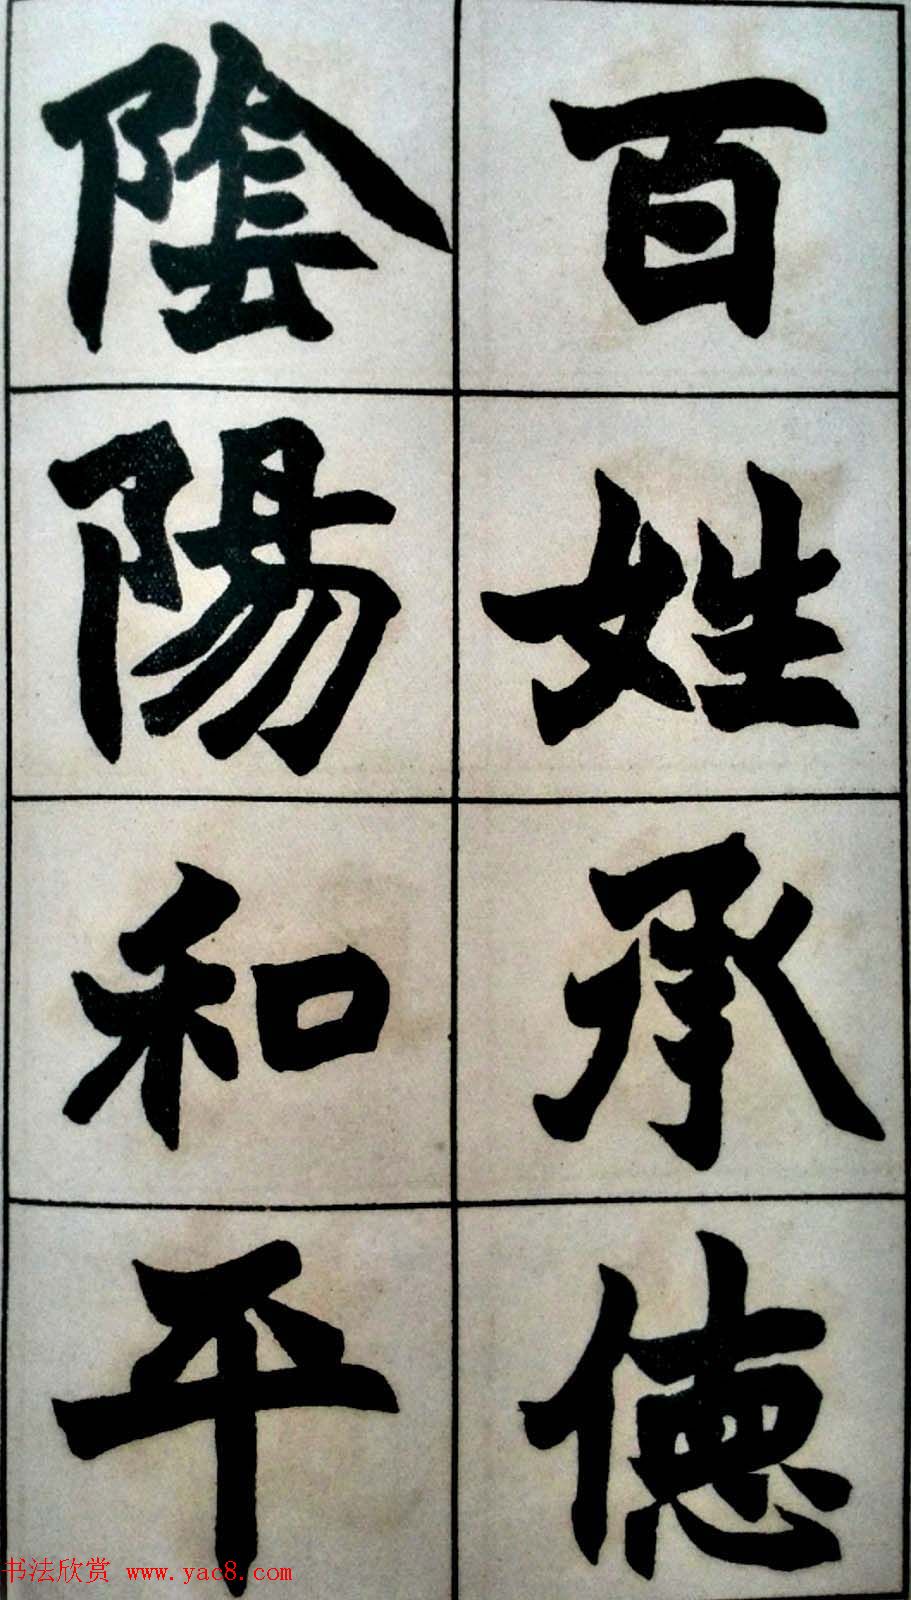 百姓承德
陰陽和平
书法欣赏 www.yac8.com